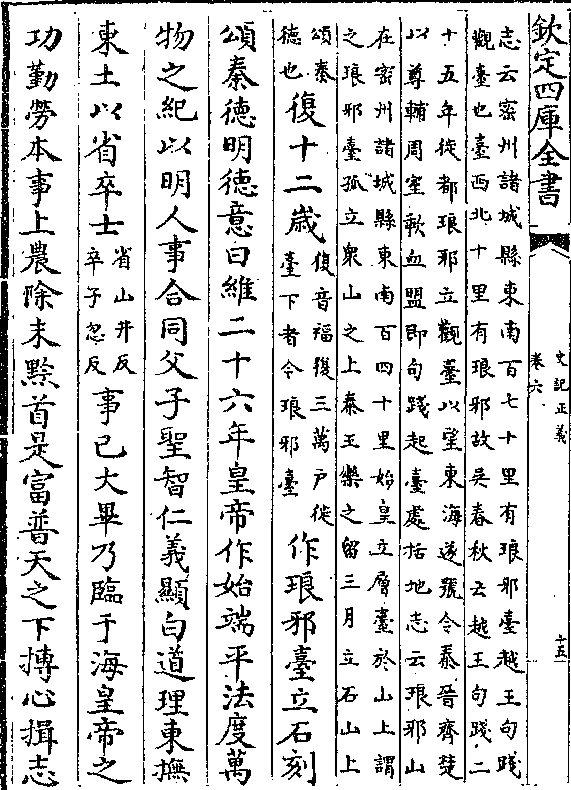 欽定四庫全書
史記正義
卷六
十五
志云密州諸城縣東南百七十里有琅邪臺越王句踐
觀臺也臺西北十里有琅邪故吳春秋云越王句踐二
十五年徙都琅邪立觀臺以望東海遂號令秦晉齊楚
以尊輔周室歃血盟即句踐起臺處括地志云琅邪山
在密州諸城縣東南百四十里始皇立層臺於山上謂
之琅邪臺孤立衆山之上秦王樂之留三月立石山上
頌秦德也復十二歲復音福復三萬戶徙臺下者令琅邪臺作琅邪臺立石刻
頌秦德明德意曰維二十六年皇帝作始端平法度萬
物之紀以明人事合同父子聖智仁義顯白道理東撫
東土以省卒士省山井反卒子忽反事已大畢乃臨于海皇帝之
功勤勞本事上農除末黔首是富普天之下摶心揖志